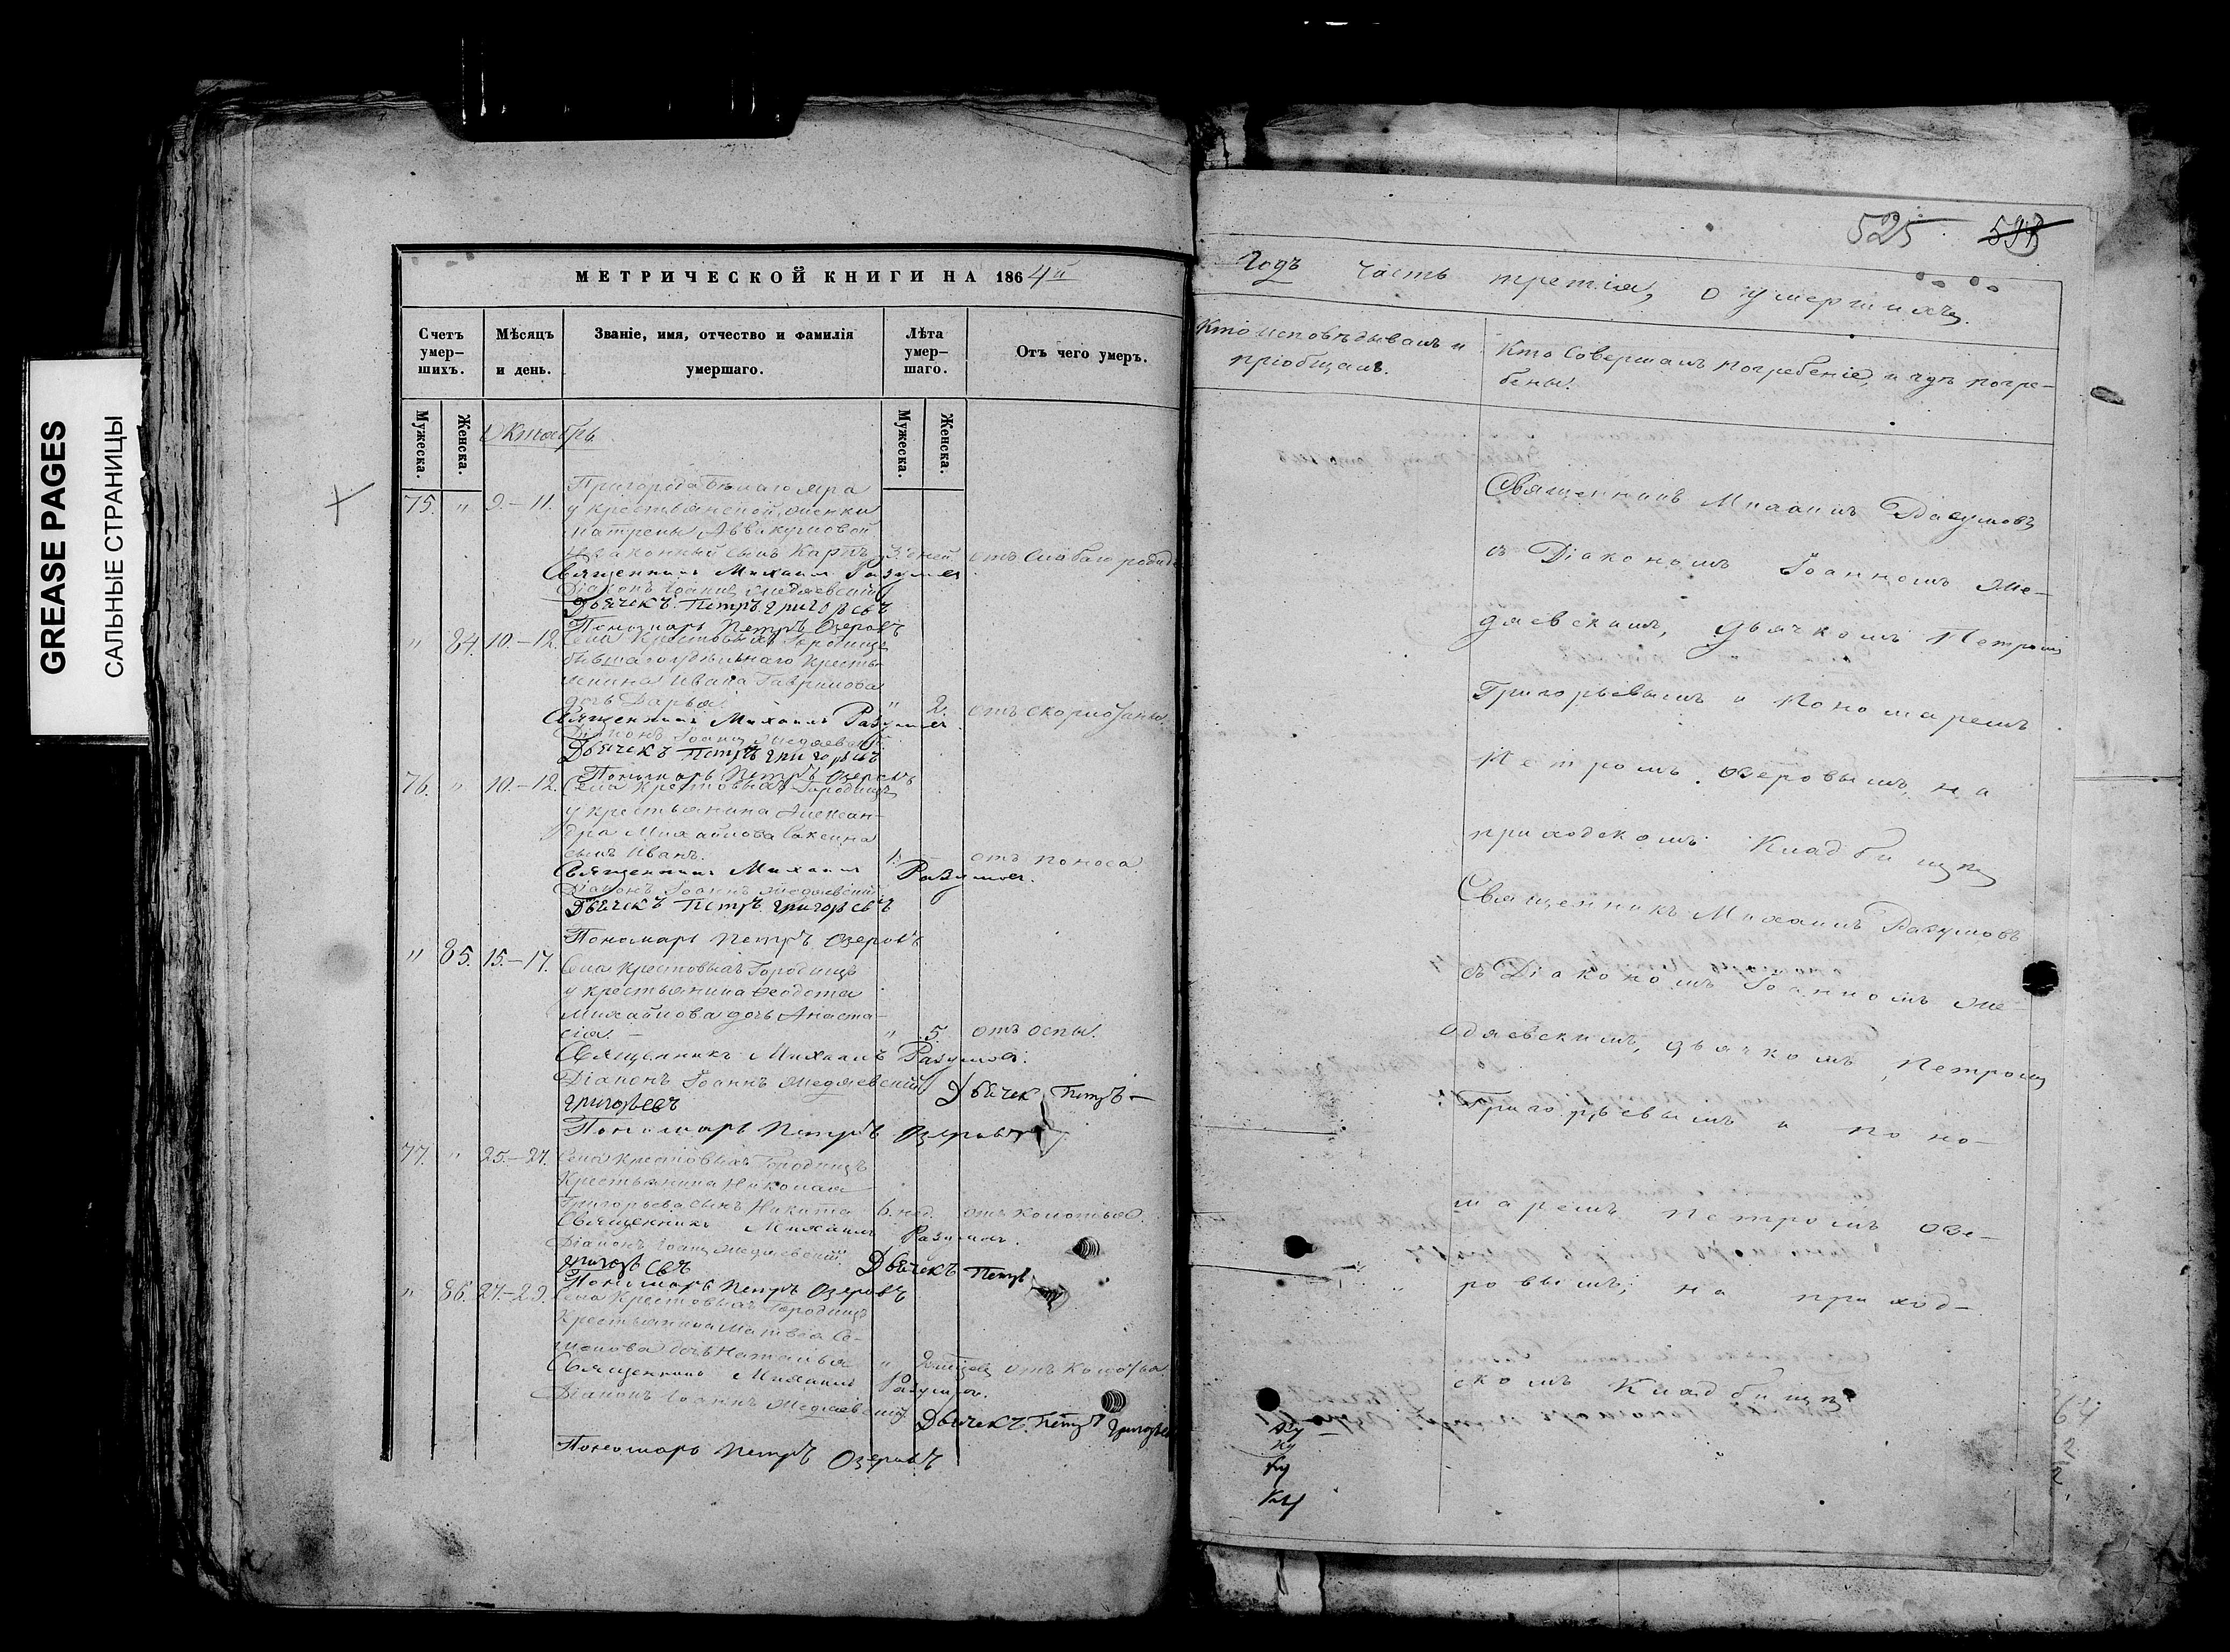 GREASE PAGES
САЛЬНЫЕ СТРАНИЦЫ
МЕТРИЧЕСКОЙ КНИГИ НА 1864й
Счетъ умер-шихъ.
Мѣсяцъ и день.
Званіе, имя, отчество и фамилія умершаго.
Лѣта умер-шаго.
Отъ чего умеръ.
Мужеска.
Женска.
Мужеска.
Женска.
Октябрь
75. " 9.-11. Пригорода Бѣлаго яра
у крестьянской женки
Матрены Аввакумовой
незаконный сынъ Карпъ 3. дней отъ слабаго
Священникъ Михаилъ Разумовъ
Діаконъ Іоаннъ Медяевскій
Дьячекъ Петръ Григорьевъ
Пономарь Петръ Озеровъ
" 84. 10.-12. Села Крестовыхъ Городищъ
бывшаго удѣльнаго кресть-
янина Ивана Гаврилова
дочь Дарья " 2. отъ
Священникъ Михаилъ Разумовъ
Діаконъ Іоаннъ Медяевскій
Дьячекъ Петръ Григорьевъ
Пономарь Петръ Озеровъ
76. " 10.-12. Села Крестовыхъ Городищъ
у крестьянина Алексан-
дра Михайлова
сынъ Иванъ. 1. отъ поноса
Священникъ Михаилъ Разумовъ.
Діаконъ Іоаннъ Медяевскій
Дьячекъ Петръ Григорьевъ
Пономарь Петръ Озеровъ
" 85. 15.-17. Села Крестовыхъ Городищъ
у крестьянина Ѳеодота
Михайлова дочь Анаста-
сія. " 5. отъ оспы.
Священникъ Михаилъ Разумовъ.
Діаконъ Іоаннъ Медяевскій Дьячек Петръ
Григорьевъ
Пономарь Петръ Озеровъ
77. " 25.-27. Села Крестовыхъ Городищъ
Крестьянина Николая
Григорьева сынъ Никита 6. нед. отъ колотья.
Священникъ Михаилъ Разумовъ.
Діаконъ Іоаннъ Медяевскій
Дьячекъ Петръ
Григорьевъ
Пономарь Петръ Озеровъ
" 86. 27.-29. Села Крестовыхъ Городищъ
Крестьянина Матвѣя Се-
менова дочь Наталья " отъ колотья.
Священникъ Михаилъ Разумовъ.
Діаконъ Іоаннъ Медяевскій
Дьячекъ Петръ Григорьев
Пономарь Петръ Озеровъ
525
годъ часть третія, о умершихъ.
Кто исповѣдывалъ и пріобщалъ.
Кто совершалъ погребеніе, и гдѣ погре-
бены.
Священникъ Михаилъ Разумовъ
съ Діакономъ Іоанномъ Ме-
дяевскимъ, дьячкомъ Петромъ
Григорьевымъ и Пономаремъ
Петромъ Озеровымъ, на
приходскомъ Кладбищѣ
Священникъ Михаилъ Разумовъ
съ Діакономъ Іоанномъ Ме-
дяевскимъ, дьячкомъ Петромъ
Григорьевымъ и поно-
маремъ Петромъ Озе-
ровымъ, на приход-
скомъ Кладбищѣ